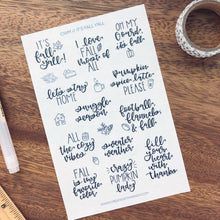 IT'S FALL Y'ALL
IT'S
FALL
y'all!
I love
FALL
most of
ALL
OH MY
GOURD,
it's fall
let's stay
HOME
Pumpkin
spice latte
PLEASE
snuggle
season
football,
flannels
& fall
ALL
the cozy
vibes
sweater
weather
FALL
is my
favorite
color
crazy
PUMPKIN
lady
fill
your
heart
with
thanks